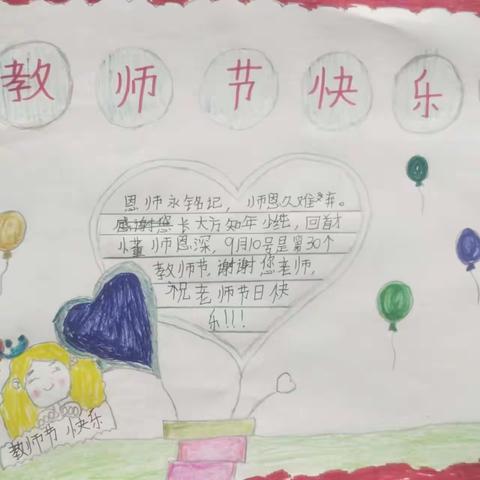 教师节快乐
恩师永铭记，师恩久难弃。
感谢您长大方知年少纯，回首才
懂师恩深，9月10号是第30个
教师节，谢谢您老师，
祝老师节日快
乐!!!
教师节快乐